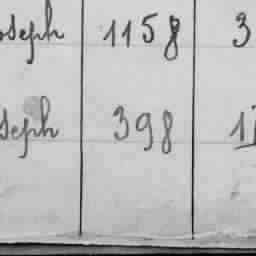 oseph 1158 3
seph 398